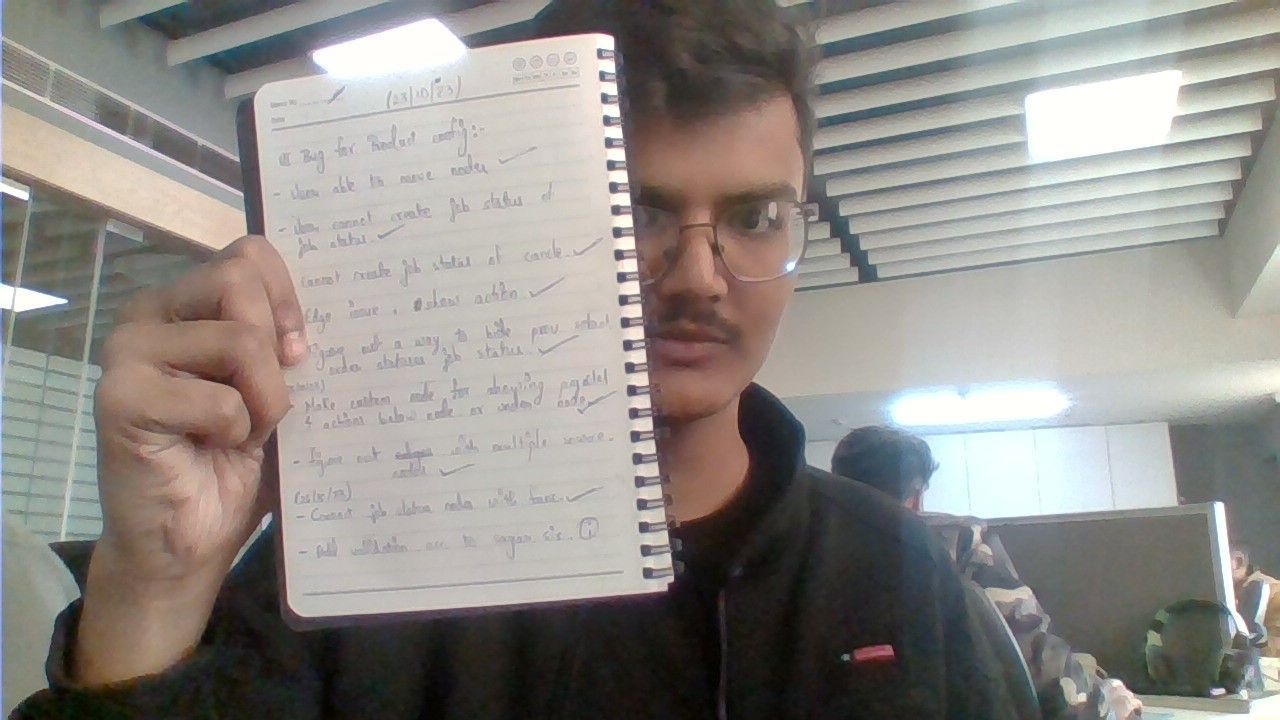 (23/10/23)
UI Bug for Product config:-
- User able to move nodes
- User cannot create job status of
job status
Cannot create job status of cancle.
Edge issue, show action
Figure out a way to hide prev select
order statuses job status.
Make custom node for showing parallel
& actions below node or under node
- Figure out edges with multiple source
node
(25/10/23)
- Connect job status nodes with
- Add validation acc to sagar sir.